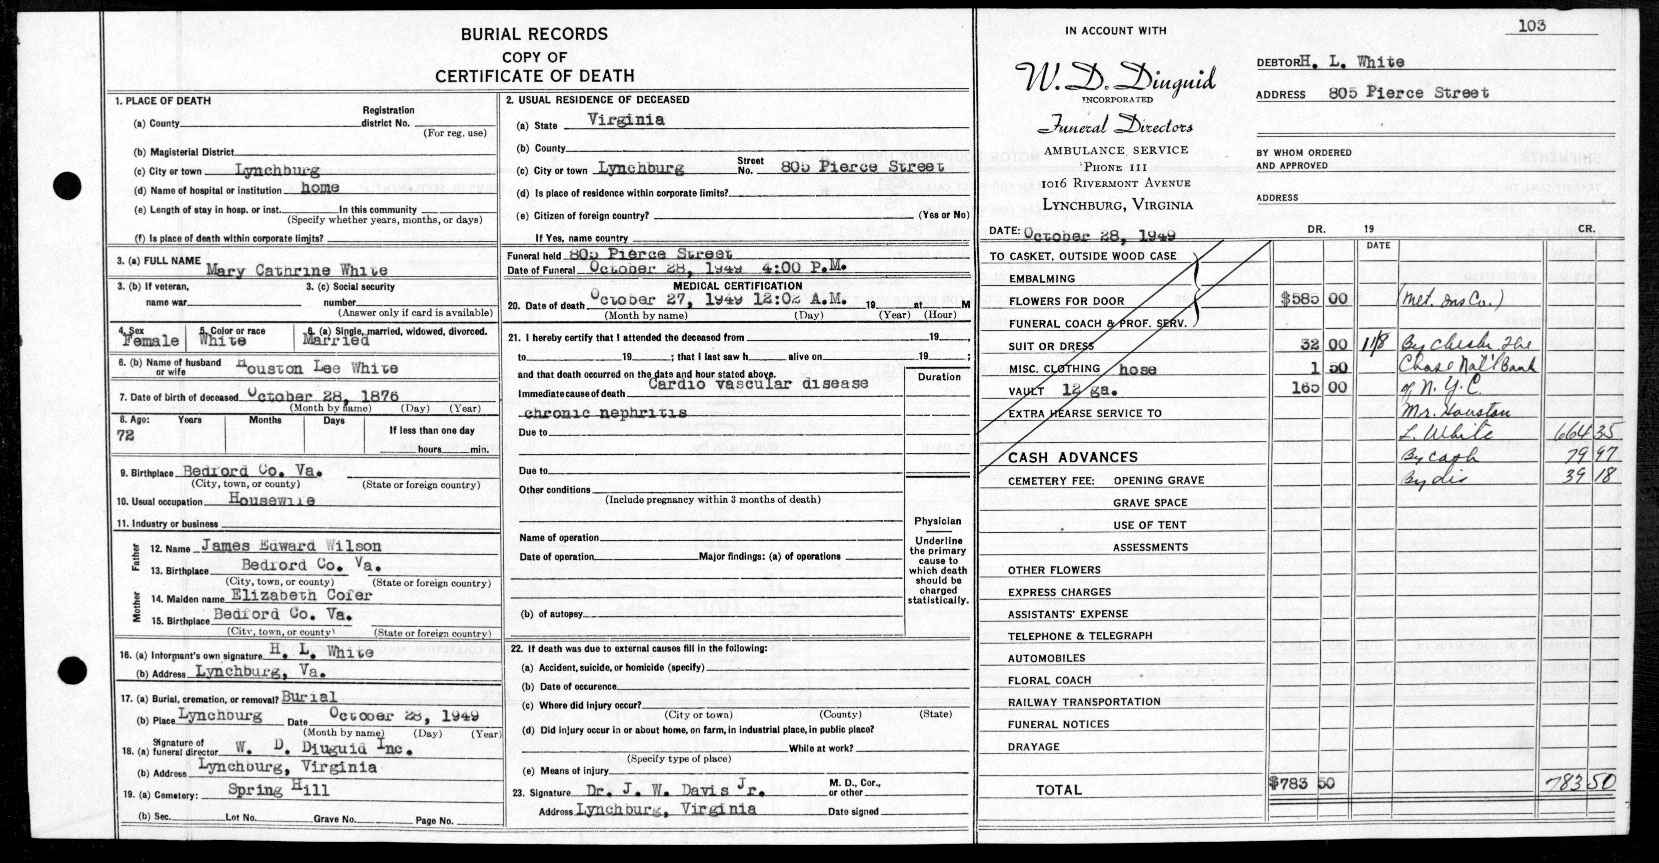 BURIAL RECORDS
COPY OF
CERTIFICATE OF DEATH
1. PLACE OF DEATH
(a) County Registration district No.
(For reg. use)
(b) Magisterial District
(c) City or town Lynchburg
(d) Name of hospital or institution home
(e) Length of stay in hosp. or inst. In this community
(Specify whether years, months, or days)
(f) Is place of death within corporate limits?
3. (a) FULL NAME Mary Cathrine White
3. (b) If veteran, name war 3. (c) Social security number
(Answer only if card is available)
4. Sex Female 5. Color or race White 6. (a) Single, married, widowed, divorced. Married
6. (b) Name of husband or wife Houston Lee White
7. Date of birth of deceased October 28, 1876
(Month by name) (Day) (Year)
8. Age: Years Months Days If less than one day
72 hours min.
9. Birthplace Bedford Co. Va.
(City, town, or county) (State or foreign country)
10. Usual occupation Housewife
11. Industry or business
Father
12. Name James Edward Wilson
13. Birthplace Bedford Co. Va.
(City, town, or county) (State or foreign country)
Mother
14. Maiden name Elizabeth Cofer
15. Birthplace Bedford Co. Va.
(City, town, or county) (State or foreign country)
16. (a) Informant's own signature H. L. White
(b) Address Lynchburg, Va.
17. (a) Burial, cremation, or removal? Burial
(b) Place Lynchburg Date October 28, 1949
(Month by name) (Day) (Year)
18. (a) Signature of funeral director W. D. Diuguid Inc.
(b) Address Lynchburg, Virginia
19. (a) Cemetery: Spring Hill
(b) Sec. Lot No. Grave No. Page No.
2. USUAL RESIDENCE OF DECEASED
(a) State Virginia
(b) County
(c) City or town Lynchburg Street No. 805 Pierce Street
(d) Is place of residence within corporate limits?
(e) Citizen of foreign country? (Yes or No)
If Yes, name country
Funeral held 805 Pierce Street
Date of Funeral October 28, 1949 4:00 P.M.
MEDICAL CERTIFICATION
20. Date of death October 27, 1949 12:02 A.M. 19 at M
(Month by name) (Day) (Year) (Hour)
21. I hereby certify that I attended the deceased from 19 ,
to 19 ; that I last saw h alive on 19 ;
and that death occurred on the date and hour stated above. Duration
Immediate cause of death Cardio vascular disease
chronic nephritis
Due to
Due to
Other conditions
(Include pregnancy within 3 months of death)
Name of operation
Date of operation Major findings: (a) of operations
(b) of autopsy
Physician
Underline
the primary
cause to
which death
should be
charged
statistically.
22. If death was due to external causes fill in the following:
(a) Accident, suicide, or homicide (specify)
(b) Date of occurence
(c) Where did injury occur?
(City or town) (County) (State)
(d) Did injury occur in or about home, on farm, in industrial place, in public place?
While at work?
(Specify type of place)
(e) Means of injury
23. Signature Dr. J. W. Davis Jr. M. D., Cor., or other
Address Lynchburg, Virginia Date signed
103
IN ACCOUNT WITH
W. D. Diuguid
INCORPORATED
Funeral Directors
AMBULANCE SERVICE
PHONE 111
1016 RIVERMONT AVENUE
LYNCHBURG, VIRGINIA
DEBTOR H. L. White
ADDRESS 805 Pierce Street
BY WHOM ORDERED
AND APPROVED
ADDRESS
DATE: October 28, 1949 DR. 19 CR.
DATE
TO CASKET, OUTSIDE WOOD CASE
EMBALMING
FLOWERS FOR DOOR $585 00 (Met. Ins Co.)
FUNERAL COACH & PROF. SERV.
SUIT OR DRESS 32 00 11/8 By Check The
MISC. CLOTHING hose 1 50 Chase Nat'l Bank
VAULT 12 ga. 165 00 of N. Y. C.
EXTRA HEARSE SERVICE TO Mr. Houston
L. White 664 35
CASH ADVANCES By cash 79 97
CEMETERY FEE: OPENING GRAVE By dis 39 18
GRAVE SPACE
USE OF TENT
ASSESSMENTS
OTHER FLOWERS
EXPRESS CHARGES
ASSISTANTS' EXPENSE
TELEPHONE & TELEGRAPH
AUTOMOBILES
FLORAL COACH
RAILWAY TRANSPORTATION
FUNERAL NOTICES
DRAYAGE
TOTAL $783 50 783 50